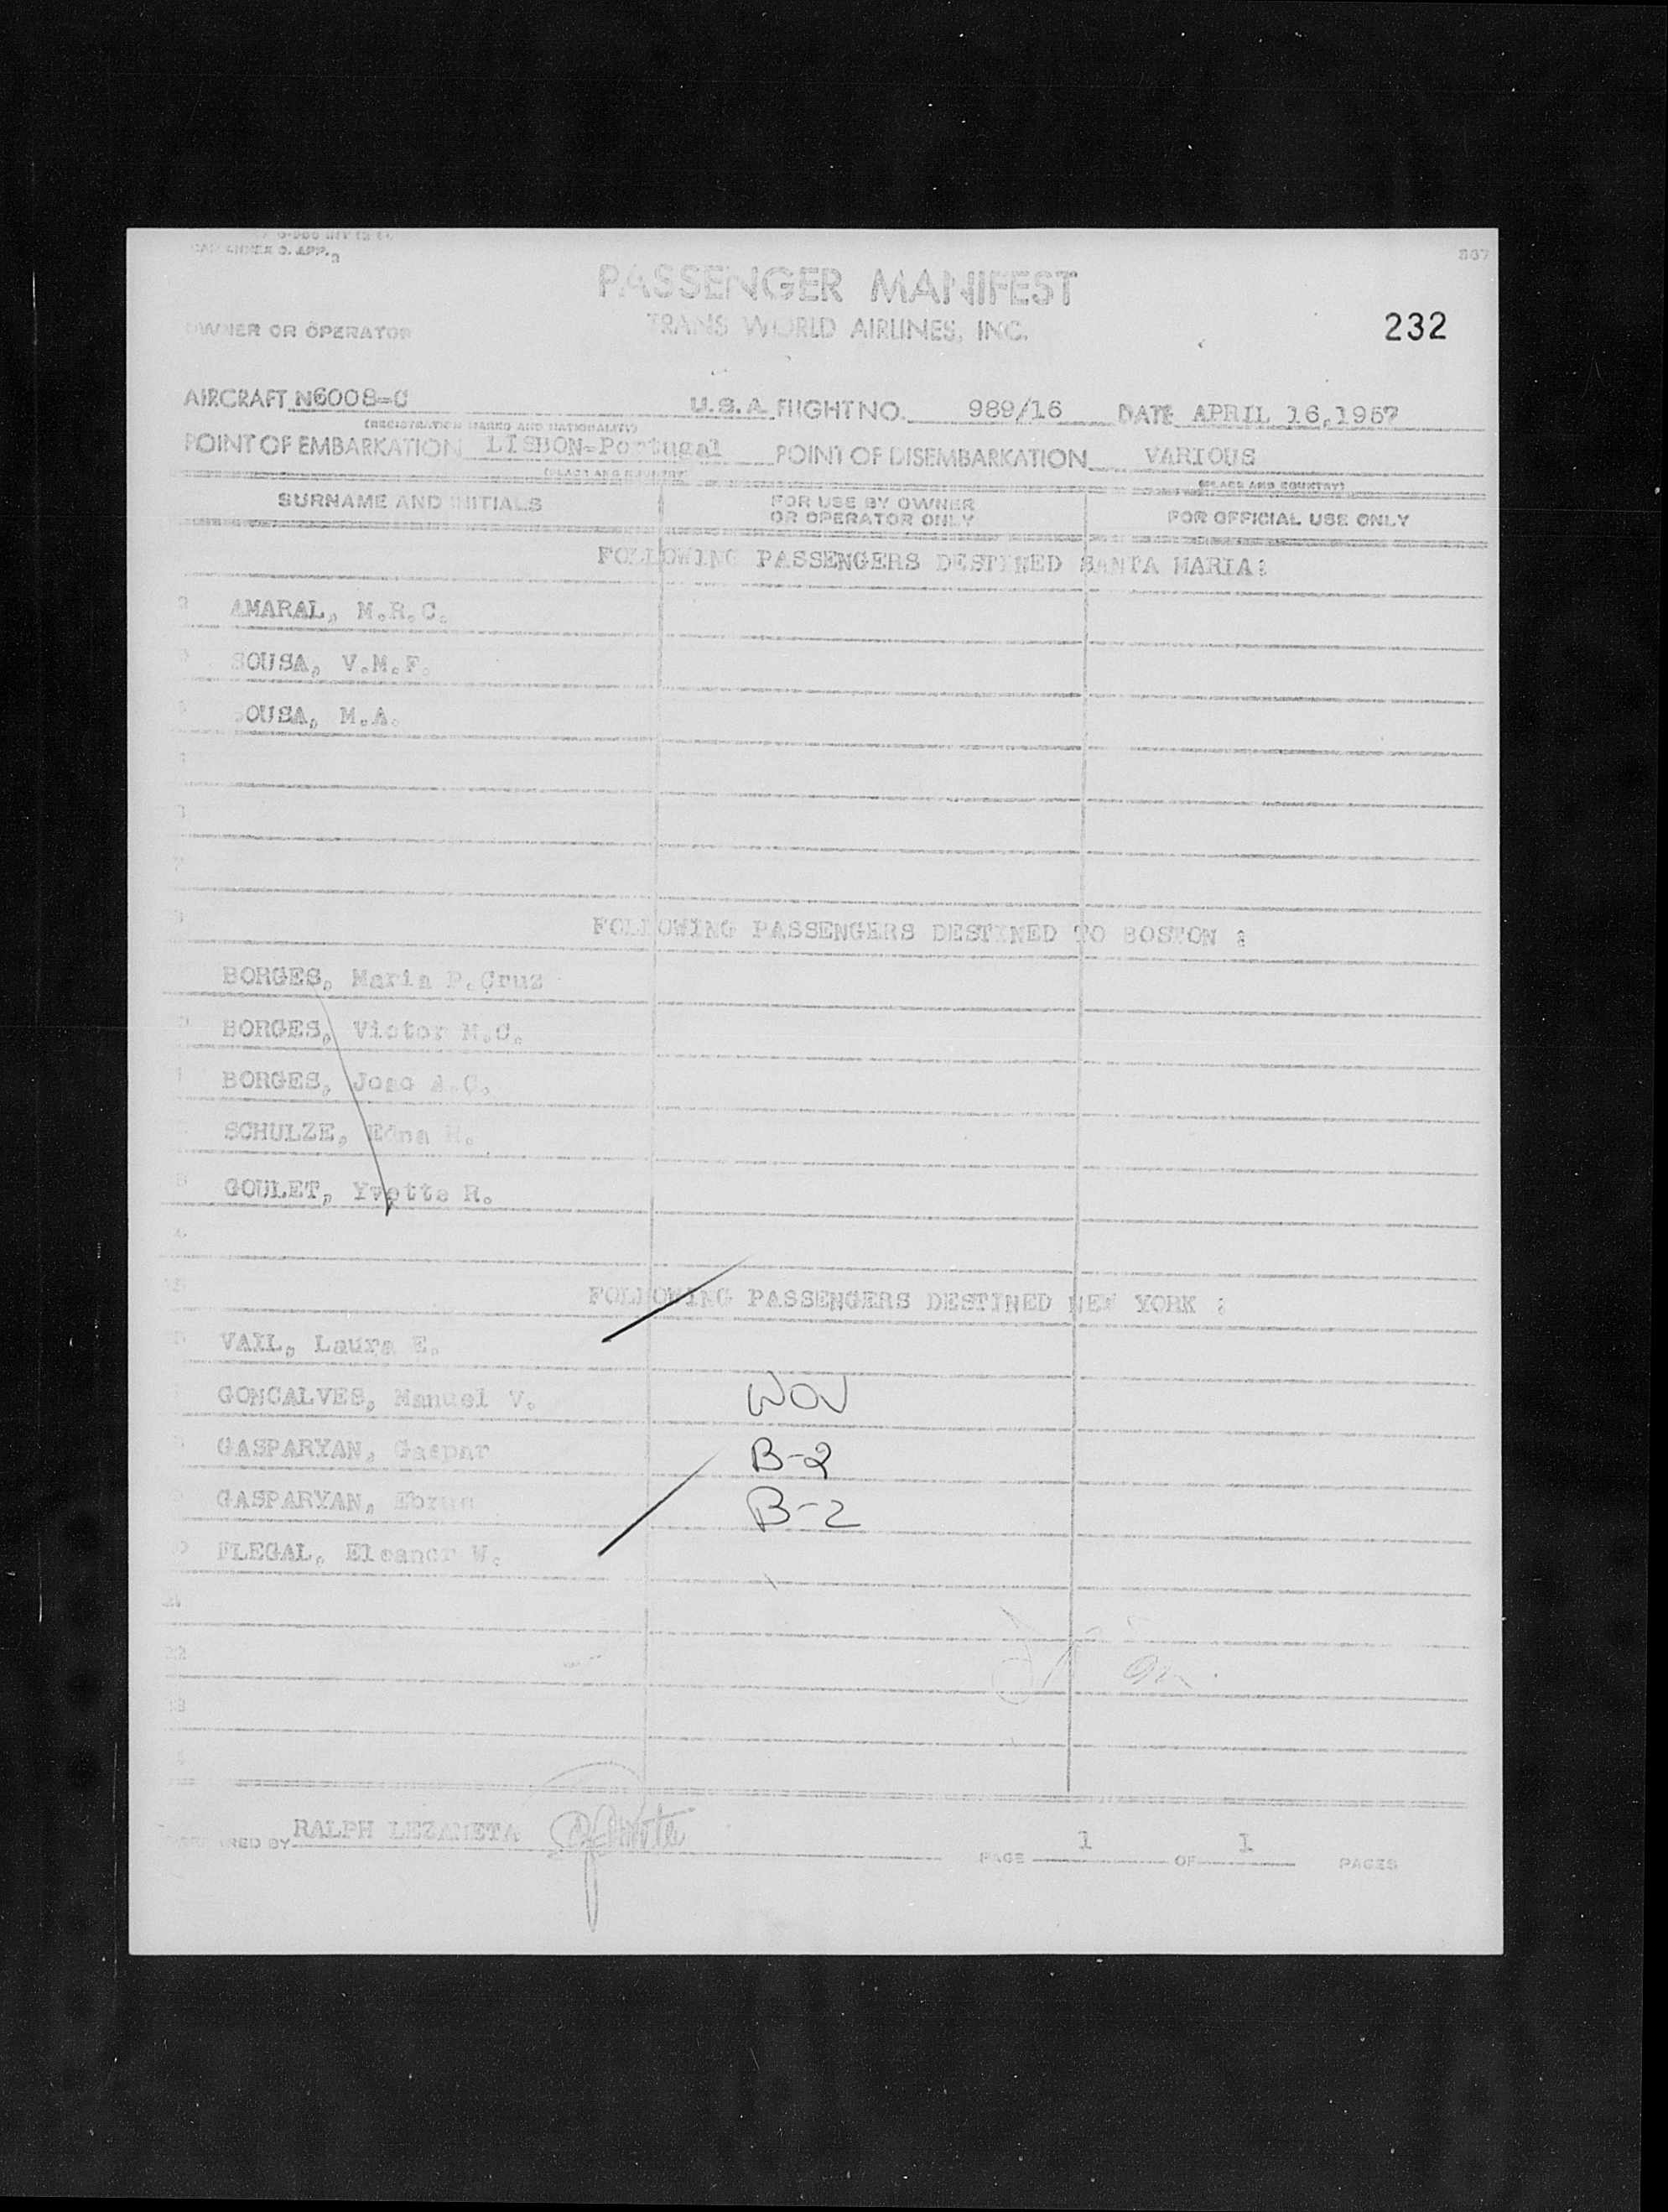 867
PASSENGER MANIFEST
OWNER OR OPERATOR TRANS WORLD AIRLINES, INC. 232
AIRCRAFT N6008-C U.S.A FLIGHT NO. 989/16 DATE APRIL 16,1957
(REGISTRATION MARKS AND NATIONALITY)
POINT OF EMBARKATION LISBON-Portugal POINT OF DISEMBARKATION VARIOUS
(PLACE AND COUNTRY) (PLACE AND COUNTRY)
SURNAME AND INITIALS FOR USE BY OWNER OR OPERATOR ONLY FOR OFFICIAL USE ONLY
FOLLOWING PASSENGERS DESTINED SANTA MARIA:
AMARAL, M.R.C.
SOUSA, V.M.F.
SOUSA, M.A.
FOLLOWING PASSENGERS DESTINED TO BOSTON :
BORGES, Maria P.Cruz
BORGES, Victor M.C.
BORGES, Joao A.C.
SCHULZE, Edna H.
GOULET, Yvette R.
FOLLOWING PASSENGERS DESTINED NEW YORK :
VAIL, Laura E.
GONCALVES, Manuel V. WOV
GASPARYAN, Gaspar B-2
GASPARYAN, B-2
FLEGAL, Eleanor W.
22
PREPARED BY RALPH LEZAMETA
PAGE 1 OF 1 PAGES